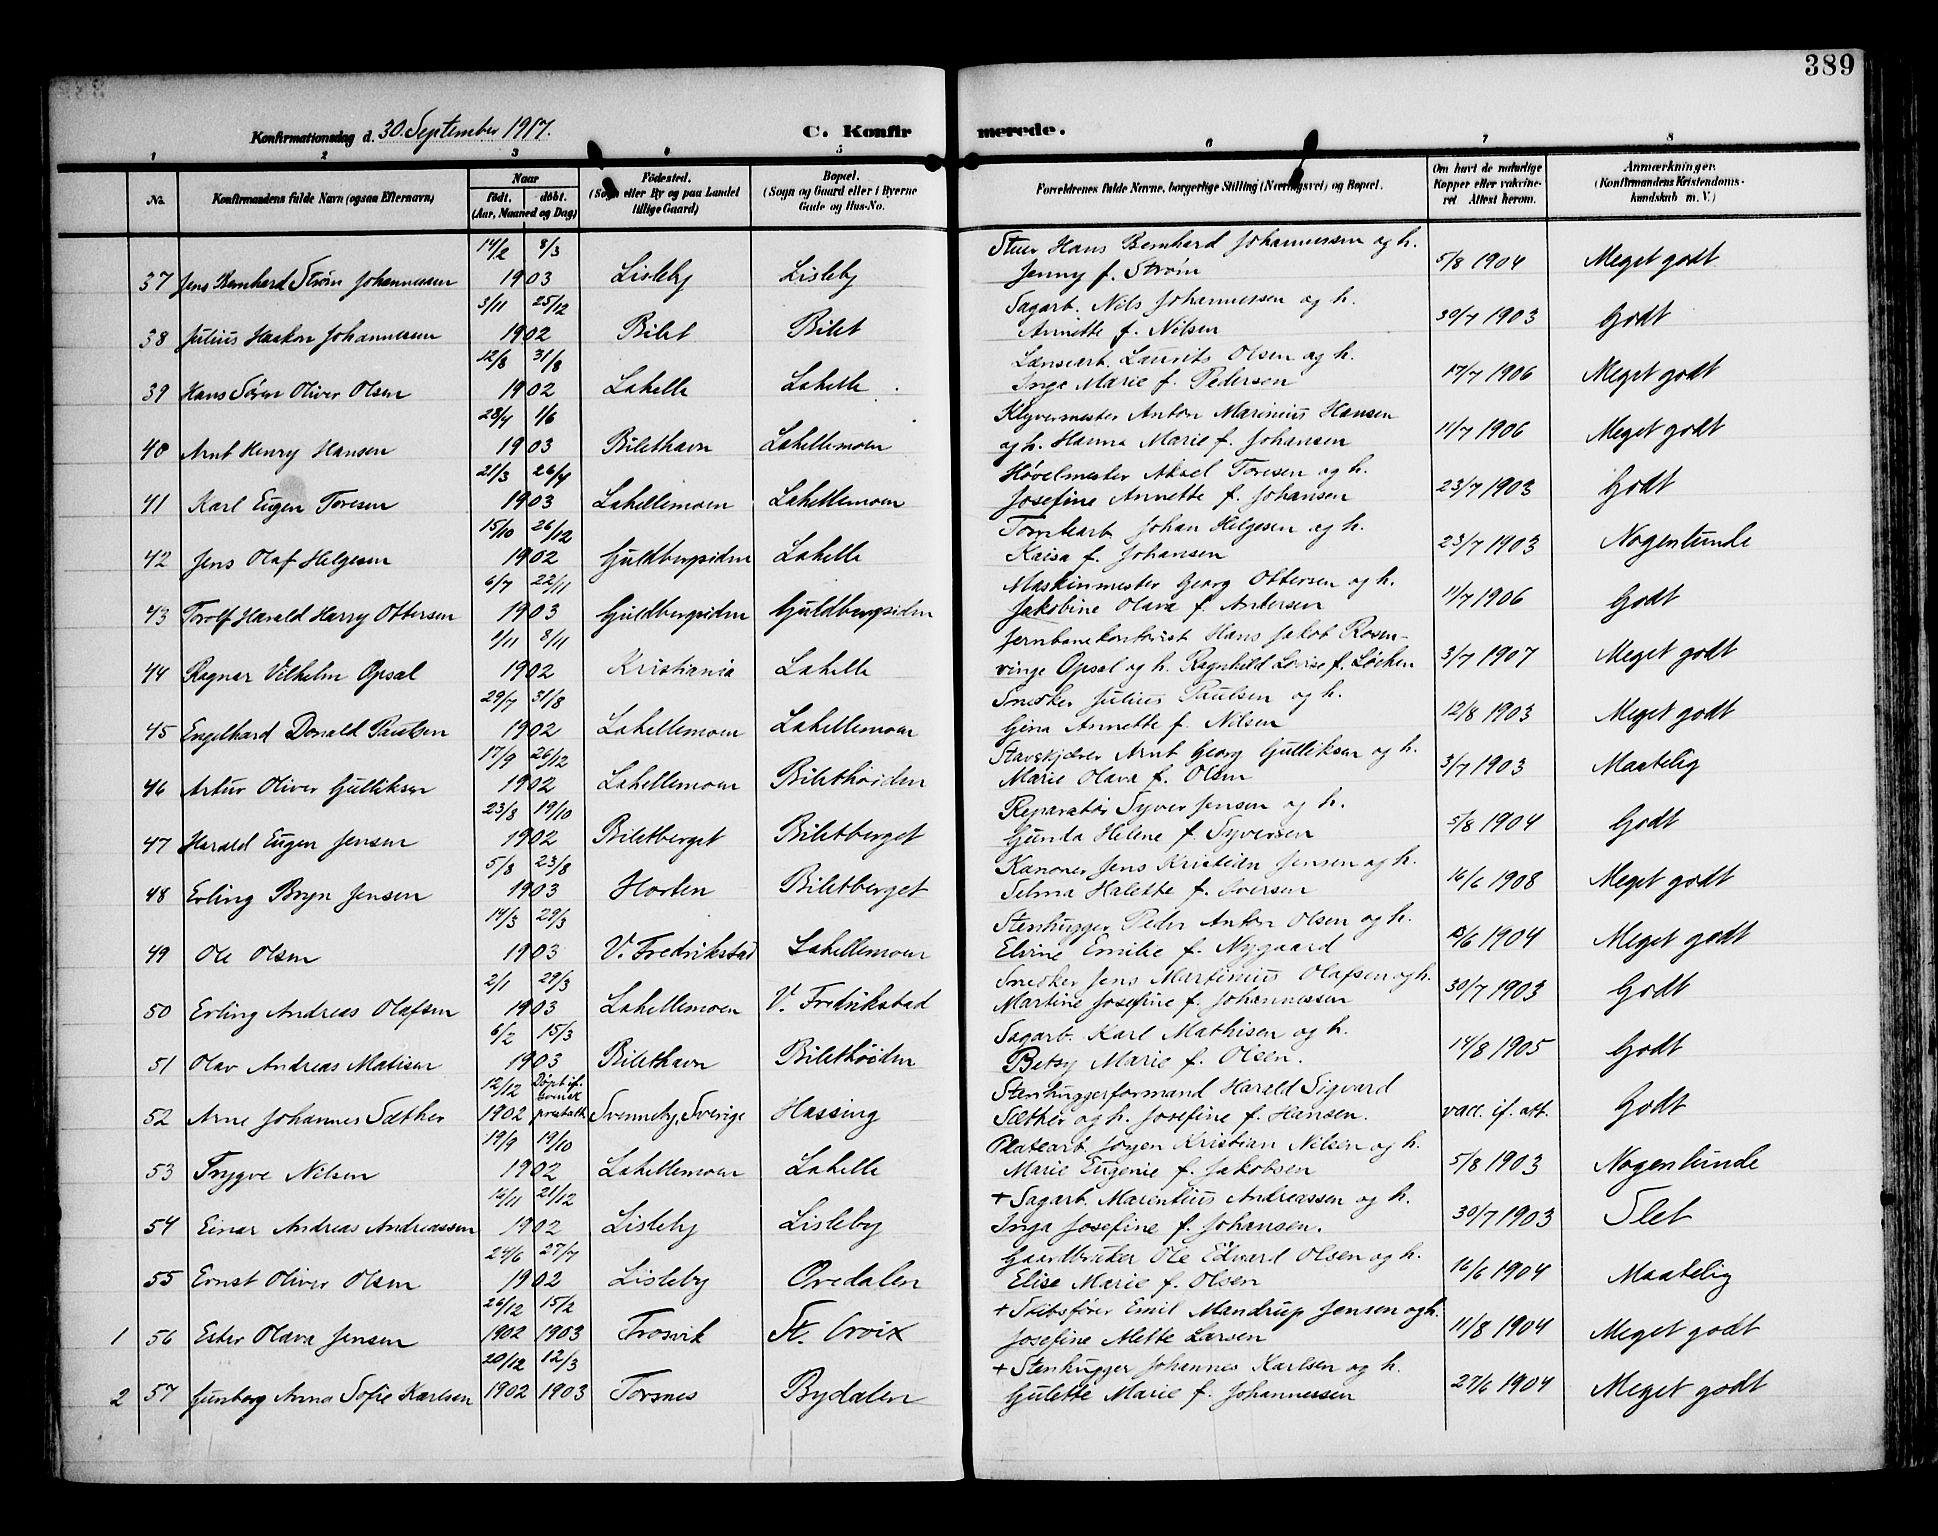 389
Konfirmationsdag d. 30. September 1917. C. Konfirmerede.
1 2 3 4 5 6 7 8
No. Konfirmandens fulde Navn (ogsaa Efternavn) Naar født. døbt. (Aar, Maaned og Dag) Fødested. (Sogn eller By og paa Landet tillige Gaard) Bopæl. (Sogn og Gaard eller i Byerne Gade og Hus-No. Forældrenes fulde Navne, borgerlige Stilling (Næringsvei) og Bopæl. Om havt de naturlige Kopper eller vakcineret Attest herom. Anmærkninger. (Konfirmandens Kristendomskundskab m. V.)
37 Jens Bernhard Strøm Johannessen 14/2 8/3 1903 Lisleby Lisleby Stuer Hans Bernhard Johannessen og h. Jenny f. Strøm 5/8 1904 Meget godt
38 Julius Haakon Johannessen 3/11 25/12 1902 Bilet Bilet Sagarb. Nils Johannessen og h. Annette f. Nilsen 30/7 1903 Godt
39 Hans Søren Oliver Olsen 12/8 31/8 1902 Lahelle Lahelle Lænsearb. Laurits Olsen og h. Inge Marie f. Pedersen 17/7 1906 Meget godt
40 Arnt Henry Hansen 28/4 1/6 1903 Bilethavn Lahellemoen Klyvermester Anton Marinius Hansen og h. Hanna Marie f. Johansen 11/7 1906 Meget godt
41 Karl Eugen Toresen 21/3 26/4 1903 Lahellemoen Lahellemoen Høvelmester Aksel Toresen og h. Josefine Annette f. Johansen 23/7 1903 Godt
42 Jens Olaf Helgesen 15/10 26/12 1902 Guldbergsiden Lahelle Tomtearb. Johan Helgesen og h. Kaisa f. Johansen 23/7 1903 Nogenlunde
43 Torolf Harald Harry Ottersen 6/7 22/11 1903 Guldbergsiden Guldbergsiden Maskinmester Georg Ottersen og h. Jakobine Olava f. Andersen 11/7 1906 Godt
44 Ragnar Vilhelm Opsal 1/11 8/11 1902 Kristiania Lahelle Jernbanekontorist Hans Jakob Rosenvinge Opsal og h. Ragnhild Lovise f. Løcken 3/7 1907 Meget godt
45 Engelhard Donald Paulsen 29/7 31/8 1902 Lahellemoen Lahellemoen Snedker Julius Paulsen og h. Gina Annette f. Nilsen 12/8 1903 Meget godt
46 Artur Oliver Gulliksen 17/9 26/12 1902 Lahellemoen Bilethöiden Stavskjærer Arnt Georg Gulliksen og h. Marie Olava f. Olsen 3/7 1903 Maatelig
47 Harald Eugen Jensen 23/8 19/10 1902 Biletberget Biletberget Reparatør Syver Jensen og h. Gunda Helene f. Syversen 5/8 1904 Godt
48 Erling Bryn Jensen 5/8 23/8 1903 Horten Biletberget Kanoner Jens Kristian Jensen og h. Selma Halette f. Iversen 16/6 1908 Meget godt
49 Ole Olsen 14/3 29/3 1903 V. Fredrikstad Lahellemoen Stenhugger Peder Anton Olsen og h. Elvine Emilie f. Nygaard /6 1904 Meget godt
50 Erling Andreas Olafsen 2/1 29/3 1903 Lahellemoen V. Fredrikstad Snedker Jens Martinius Olafsen og h. Martine Josefine f. Johannessen 30/7 1903 Godt
51 Olav Andreas Matisen 6/2 15/3 1903 Bilethavn Bilethöiden Sagarb. Karl Mathisen og h. Betsy Marie f. Olsen. 14/8 1905 Godt
52 Arne Johannes Sæther 12/12 1902 Døpt if. svensk prestatt. Svenneby, Sverige Hassing Stenhuggerformand Harald Sigvard Sæther og h. Josefine f. Hansen. vacc. if. att. Godt
53 Trygve Nilsen 19/9 19/10 1902 Lahellemoen Lahelle Platearb. Jørgen Kristian Nilsen og h. Marie Eugenie f. Jakobsen 5/8 1903 Nogenlunde
54 Einar Andreas Andreassen 16/11 21/12 1902 Lisleby Lisleby + Sagarb. Marentius Andreassen og h. Inga Josefine f. Johansen. 30/7 1903 Slet
55 Ernst Oliver Olsen 24/6 27/7 1902 Lisleby Ovedalen Gaardbruker Ole Edvard Olsen og h. Elise Marie f. Olsen 16/6 1904 Maatelig
1 56 Ester Olava Jensen 26/12 1902 15/2 1903 Trosvik St. Croix + Skibsfører Emil Mandrup Jensen og h. Josefine Mette Larsen 11/8 1904 Meget godt
2 57 Gunborg Anna Sofie Karlsen 20/12 1902 12/3 1903 Torsnes Bydalen + Stenhugger Johannes Karlsen og h. Gulette Marie f. Johannessen 27/6 1904 Meget godt